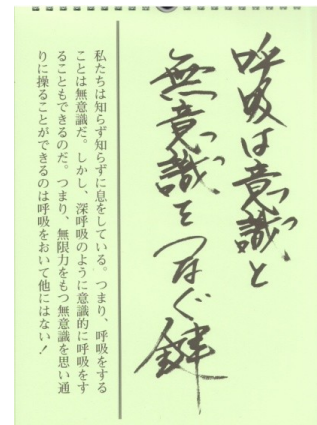 呼吸は意識と
無意識をつなぐ鎖
私たちは知らず知らずに息をしている。つまり、呼吸をする
ことは無意識だ。しかし、深呼吸のように意識的に呼吸をす
ることもできるのだ。つまり、無限力をもつ無意識を思い通
りに操ることができるのは呼吸をおいて他にはない！